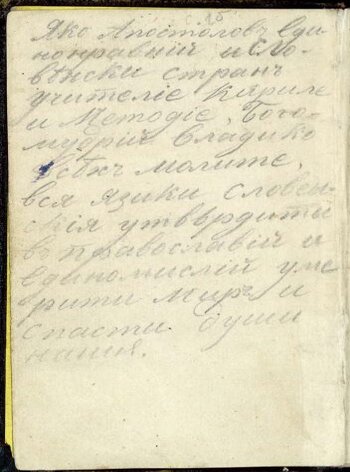 с. 15
Яко Апостоловъ Еди-
нонравній и Сло-
вѣнски странъ
учителіе Кѵриле
и Методіе, Бого-
мудрій Владико
всѣхъ молите,
вся Язики Словен-
скія утвврдити
въ православій и
единомислій уме
рити миръ и
спасти души
нашия.